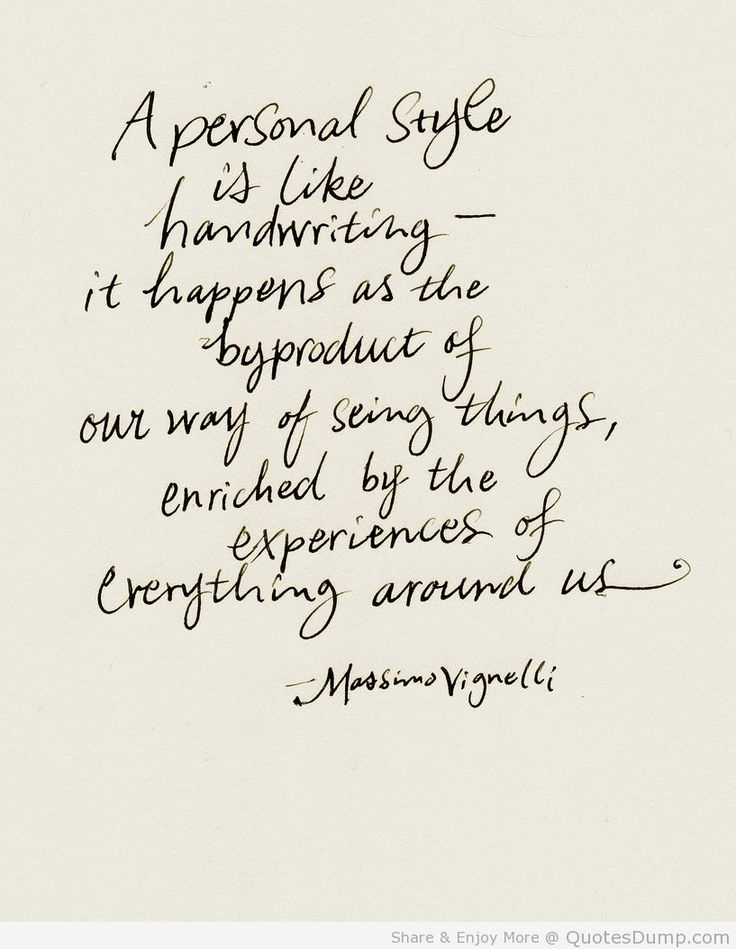 A personal style
is like
handwriting —
it happens as the
byproduct of
our way of seing things,
enriched by the
experiences of
everything around us
- Massimo Vignelli
Share & Enjoy More @ QuotesDump.com